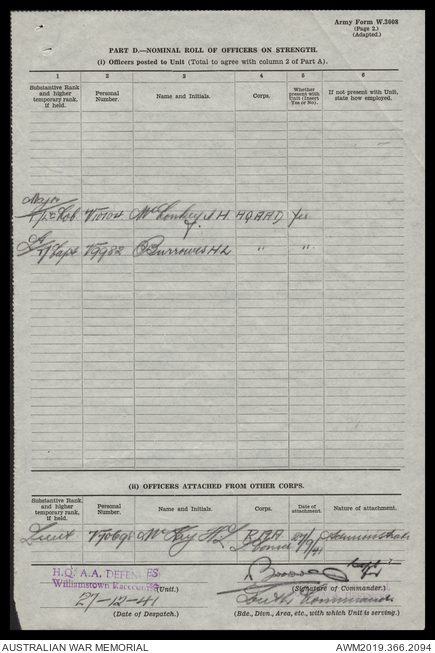 Army Form W.3008
(Page 2.)
(Adapted.)
PART D.—NOMINAL ROLL OF OFFICERS ON STRENGTH.
(i) Officers posted to Unit (Total to agree with column 2 of Part A).
1 2 3 4 5 6
Substantive Rank and higher temporary rank, if held. Personal Number. Name and Initials. Corps. Whether present with Unit (Insert Yes or No). If not present with Unit, state how employed.
Major
V10104 McConkey J H HQ AAD Yes
T/Capt V9982 Burrowes H L " "
(ii) OFFICERS ATTACHED FROM OTHER CORPS.
Substantive Rank and higher temporary rank, if held. Personal Number. Name and Initials. Corps. Date of attachment. Nature of attachment.
Lieut McKay
H.Q. A.A. DEFENCES
Williamstown Racecourse
(Unit.)
27-12-41
(Date of Despatch.)
Capt
(Signature of Commander.)
Southern Command
(Bde., Divn., Area, etc., with which Unit is serving.)
AUSTRALIAN WAR MEMORIAL
AWM2019.366.2094